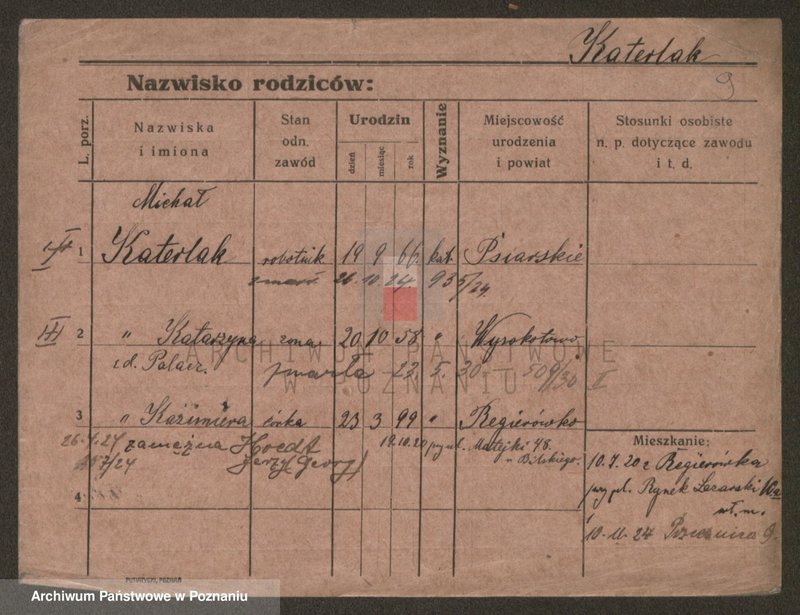 Katerlak
9
Nazwisko rodziców:
L. porz.
Nazwiska
i imiona
Stan
odn.
zawód
Urodzin
dzień
miesiąc
rok
Wyznanie
Miejscowość
urodzenia
i powiat
Stosunki osobiste
n. p. dotyczące zawodu
i t. d.
Michał
1 Katerlak robotnik 19 9 66 kat. Psiarskie
zmarł 26.10.24. 935/24.
2 " Katarzyna żona 20 10 58 " Wysokotowo
zd. Palacz. zmarła 23 5. 30 509/30 II
ARCHIWUM PAŃSTWOWE
W POZNANIU
3 " Kazimiera córka 23 3 99 " Regierówko
26.4.24 zamężna Hoedt 19.10.20 przy ul. Matejki 48.
Jerzy Georg u Bilskiego.
4
Mieszkanie:
10.7.20 z Regierówka
przy pl. Rynek Lazarski
wł. m.
10.11.24
PUTIATYCKI, POZNAŃ
Archiwum Państwowe w Poznaniu